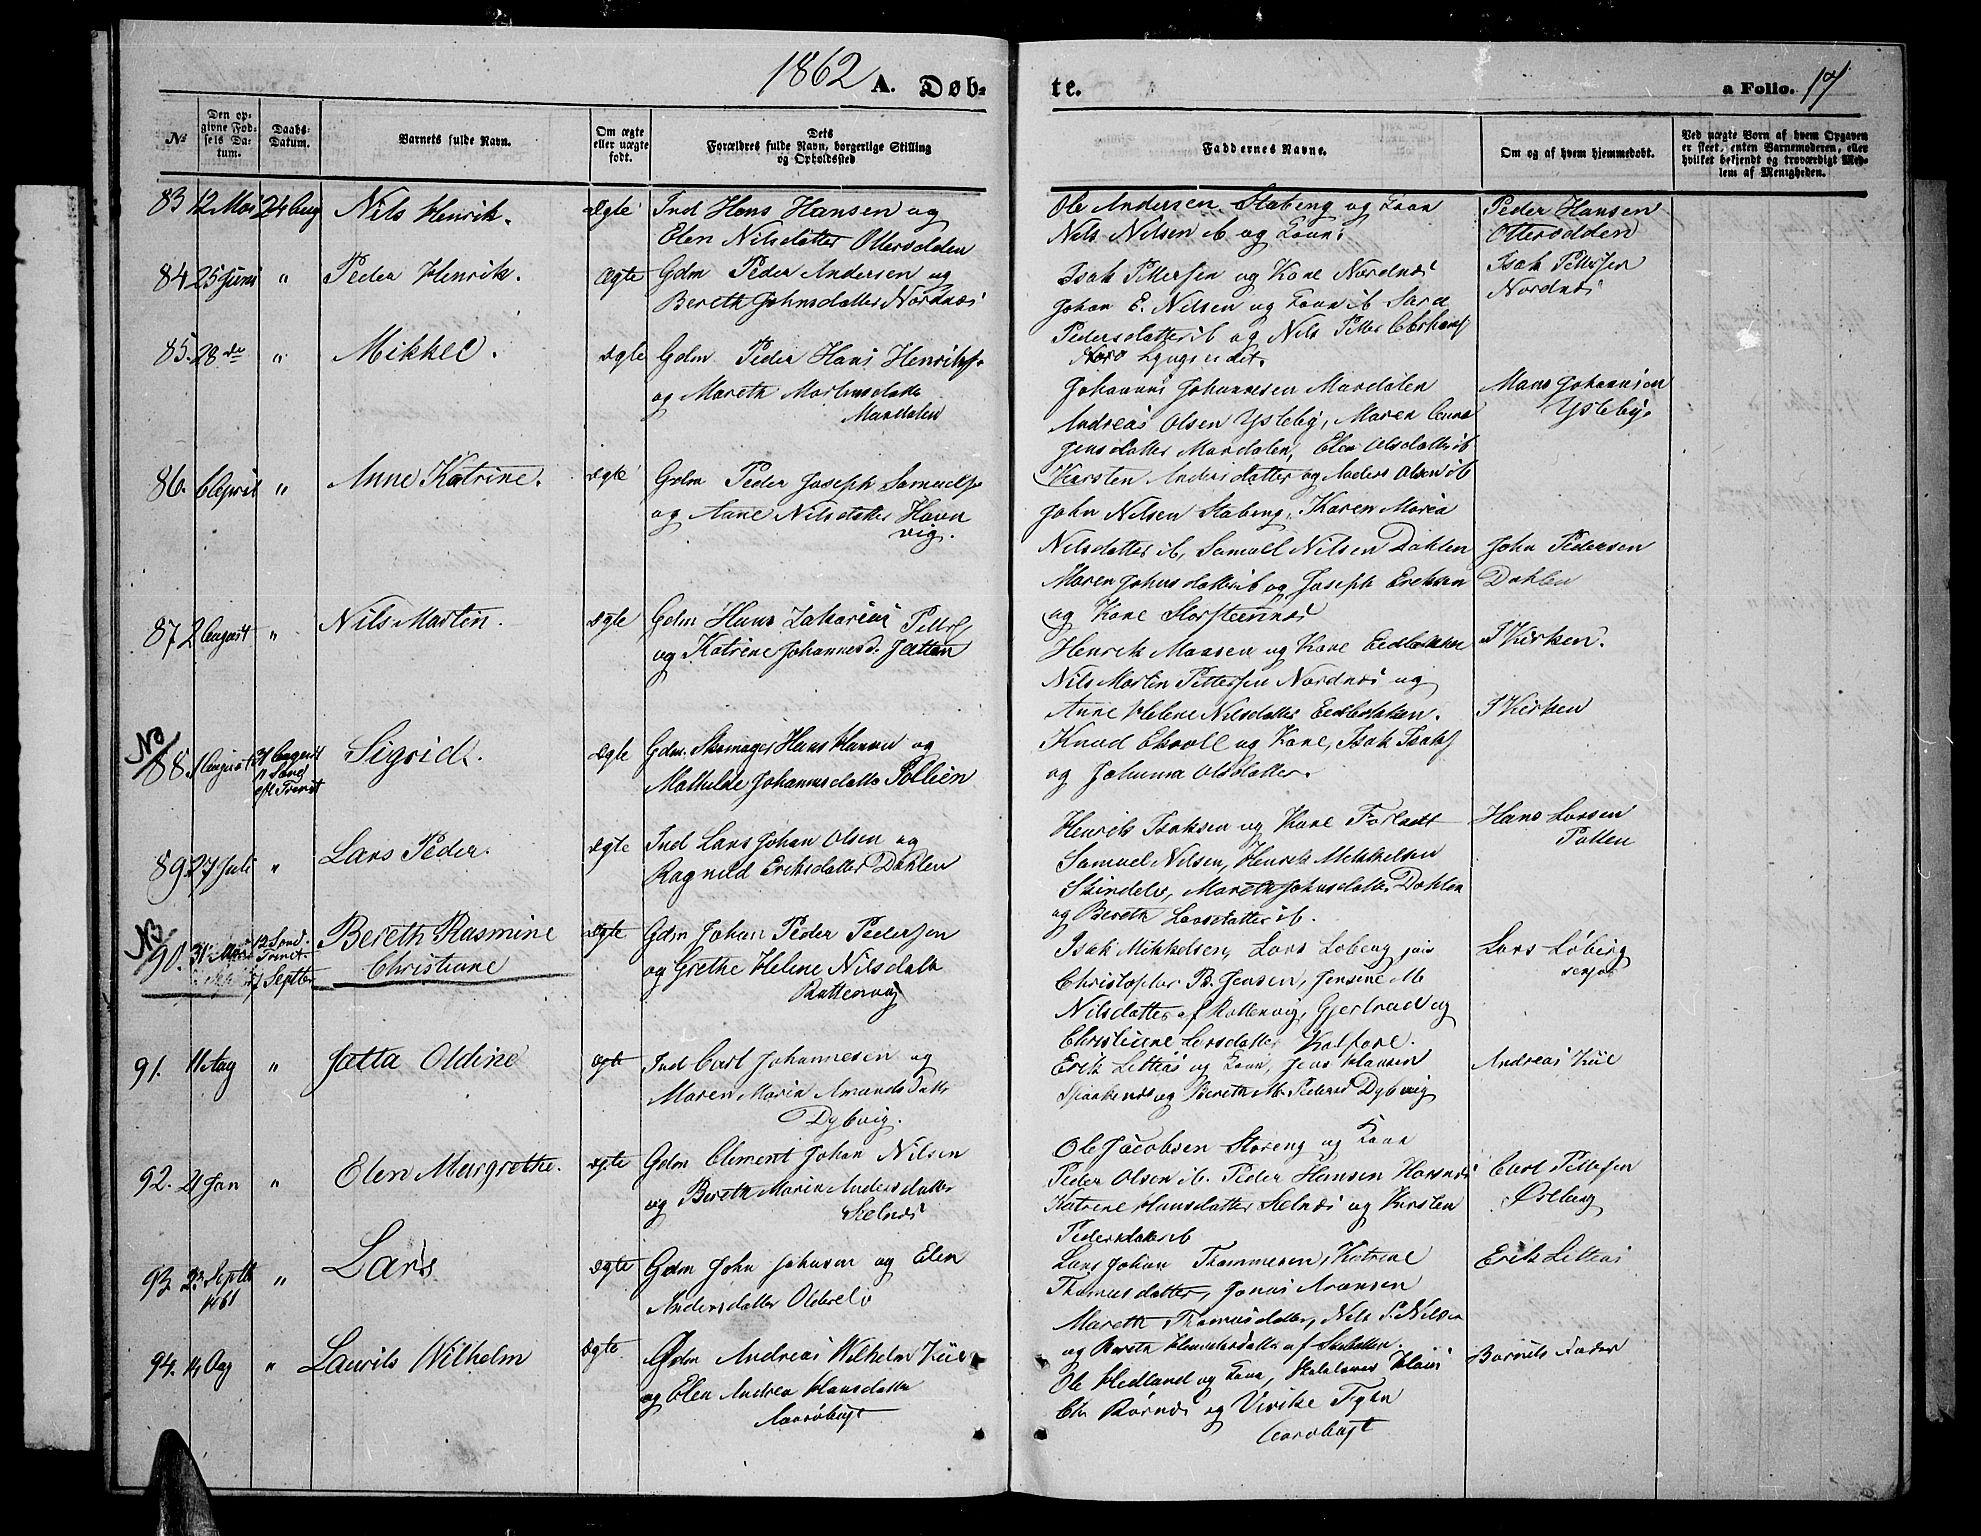 1862 A. Døb= te. a Folio. 17
No
Den op=
givne Fød=
sels Da=
tum.
Daabs=
Datum.
Barnets fulde Navn.
Om ægte
eller uægte
født.
Dets
Forældres fulde Navn, borgerlige Stilling
og Opholdssted
Faddernes Navne.
Om og af hvem hjemmedøbt.
Ved uægte Børn af hvem Opgaven
er skeet, enten Barnemoderen, eller
hvilket bekjendt og troværdigt Med=
lem af Menigheden.
83 12 Mai 24 Aug Nils Henrik. Ægte Ind Hans Hansen og
Elen Nilsdatter Ottersdalen
Ole Andersen Stabeng og Kone
Nils Nilsen ib og Kone.
Peder Hansen
Otterodden
84 25 Juni " Peder Henrik. Ægte Gdm Peder Andersen og
Bereth Johnsdatter Nordnæs
Isak Pettersen og Kone Nordnæs
Johan E. Nilsen og Kone ib Sara
Pedersdatter ib og Nils Petter
Lyngseidet.
Isak Pettersen
Nordnæs
85. 28 de " Mikkel. Ægte Gdm Peder Hans Henriks.
og Mareth Mortensdatter
Mandalen
Johannes Johannesen Mandalen
Andreas Olsen Ysteby, Maren Anna
Jensdatter Mandalen, Elen Olsdatter ib
Kirsten Andersdatter og Anders Olsen ib
Mans Johannesen
Ysteby.
86. April " Anne Katrine. Ægte Gdm Peder Joseph Samuels.
og Anne Nilsdatter Havn
vig.
John Nilsen Stabeng, Karen Maria
Nilsdatter ib, Samuel Nilsen Dahlen
Maren Johnsdatter ib og Joseph Eriksen
og Kone Storsteennæs
John Pedersen
Dahlen
87 2 August " Nils Martin. Ægte Gdm Hans Zakarias Petters.
og Katrine Johannesd. Jatten
Henrik Maasen og Kone Eidbakken
Nils Martin Pettersen Nordnæs og
Anne Helene Nilsdatter Eidbakken.
I Kirken.
No
88. August 31 August
11 Sønd
eft Trinit
Sigrid. Ægte Gdm. Skomager Hans Hansen og
Mathilde Johannesdatter Pollen
Knud Ekvoll og Kone, Isak Isaks.
og Johanna Olsdatter.
I Kirken
89. 27 Juli " Lars Peder. Ægte Ind Lars Johan Olsen og
Ragnild Eriksdatter Dahlen
Henrik Isaksen og Kone
Samuel Nilsen, Henrik Mikkelsen
Skindelv, Mareth Johnsdatter Dahlen
og Bereth Larsdatter ib.
Hans Larsen
Pollen
NB
90. 31 Mai 12 Sønd.
Trinit.
7 Septbr
Bereth Rasmine
Christiane
Ægte Gdm Johan Peder Pedersen
og Grethe Helene Nilsdatter
Rottenvig
Isak Mikkelsen, Lars Løberg jun
Christopher B. Jensen, Jensine M.
Nilsdatter af Rottenvig, Gjertrud og
Christiane Larsdatter
Lars Løberg
senior
91. 11 Aug " Jætta Oldine Ægte Ind Carl Johannesen og
Maren Maria Amundsdatter
Dybvig.
Erik Litleas og Kone, Jens Hansen
og Bereth M. Pedersd Dybvig
Andreas Kiil
92. 21 Jan " Elen Margrethe. Ægte Gdm Clement Johan Nilsen
og Bereth Maria Andersdatter
Selnæs
Ole Jacobsen Storeng og Kone
Peder Olsen ib. Peder Hansen Havnnæs
Katrine Hansdatter Selnæs og Kirsten
Pedersdatter ib
Carl Pettersen
Østberg
93 23 Septbr
1861
" Lars Ægte Gdm John Johnsen og Elen
Andersdatter Oldereb
Lars Johan Thommesen, Katrine
Thomasdatter, Jonas Aronsen
Mareth Thomasdatter, Nils P. Nilsen
og Bereth
Erik Litleas
94. 14 Aug " Laurits Wilhelm Ægte Gdm Andreas Wilhelm Kiil
og Elen Andrea Hansdatter
Aarøbugt
Ole Hedland og Kone, Skolelærer
og Vivike
Aarøbugt
Barnets Fader